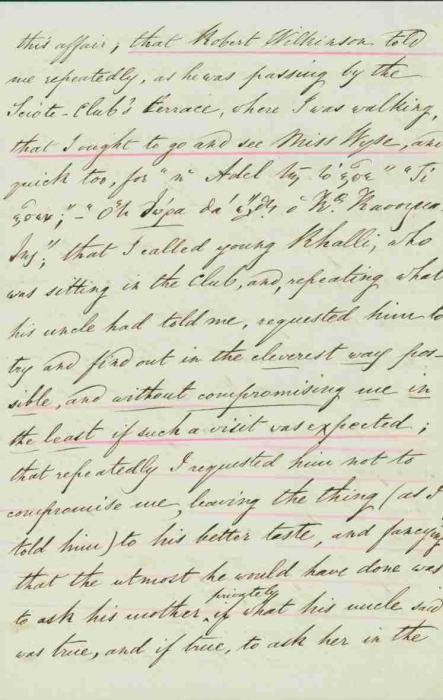 this affair; that Robert Wilkinson told
me repeatedly, as he was passing by the
Sciote-Club's terrace, where I was walking,
that I ought to go and see Miss Wyse, and
quick too; for "ἡ Adel
ὅτι τώρα θὰ ἔλθῃ ὁ
that I called young Khalli, who
was sitting in the Club, and, repeating what
his uncle had told me, requested him to
try and find out in the cleverest way pos-
sible, and without compromising me in
the least if such a visit was expected;
that repeatedly I requested him not to
compromise me, leaving the thing (as I
told him) to his better taste, and fancying
that the utmost he would have done was
to ask his mother privately if what his uncle said
was true, and if true, to ask her in the